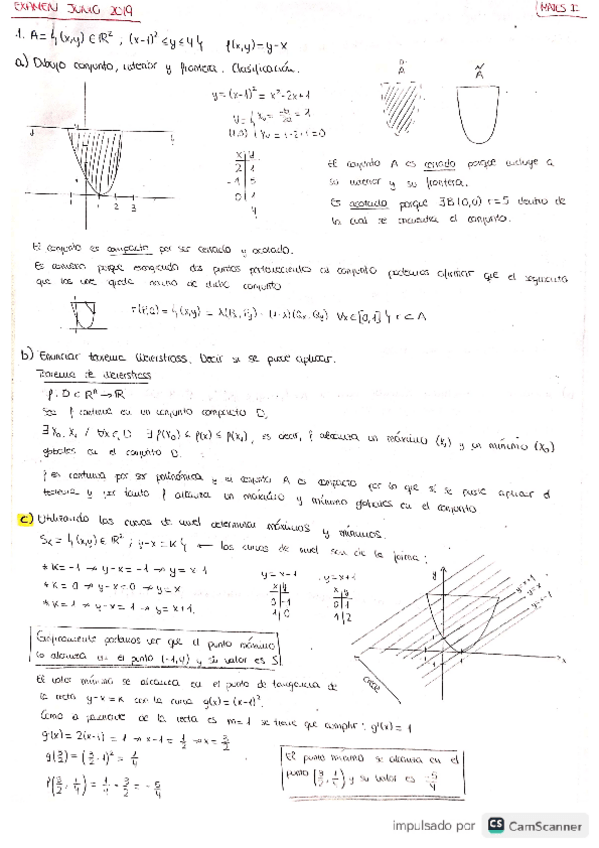 EXAMEN JUNIO 2019
MATES I
1. A = { (x,y) ∈ ℝ², (x-1)² ≤ y ≤ 4 } f(x,y) = y-x
a) Dibujo conjunto, interior y frontera. Clasificación.
y = (x-1)² = x² - 2x + 1
(1,0)
x y
2 1
-1
0 1
El conjunto A es cerrado porque incluye a
su interior y su frontera.
Es acotado porque ∃ B(0,0) r=5 dentro de
la cual se encuentra el conjunto.
El conjunto es compacto por ser cerrado y acotado.
Es convexo porque escogiendo dos puntos pertenecientes al conjunto podemos afirmar que el segmento
que los une queda dentro de dicho conjunto
b) Enunciar teorema Weierstrass. Decir si se puede aplicar.
Teorema de Weierstrass
f: D ⊂ ℝⁿ → ℝ
Sea f continua en un conjunto compacto D,
es decir, f alcanza un máximo (x₁) y un mínimo (x₀)
globales en el conjunto D.
f es continua por ser polinómica y el conjunto A es compacto por lo que sí se puede aplicar el
teorema y por tanto f alcanza un máximo y mínimo globales en el conjunto
c) Utilizando las curvas de nivel determinar máximos y mínimos.
Sₖ = { (x,y) ∈ ℝ² ; y-x = K } ← las curvas de nivel son de la forma:
* K = -1 → y-x = -1 → y = x-1
* K = 0 → y-x = 0 → y = x
* K = 1 → y-x = 1 → y = x+1.
y = x-1
x y
0 -1
1 0
y = x+1
x y
0 1
1 2
y
x
y=x+1
y=x
y=x-1
crece
Gráficamente podemos ver que el punto máximo
lo alcanza en el punto (-1,4) y su valor es 5
El valor mínimo se alcanza en el punto de tangencia de
la recta y-x = K con la curva g(x) = (x-1)².
Como la pendiente de la recta es m=1 se tiene que cumplir: g'(x) = 1
g'(x) = 2(x-1) = 1 → x-1 = 1/2 → x = 3/2
g(3/2) = (3/2 - 1)² = 1/4
f(3/2, 1/4) = 1/4 - 3/2 = -5/4
El punto mínimo se alcanza en el
punto (3/2, 1/4) y su valor es -5/4
impulsado por CS CamScanner